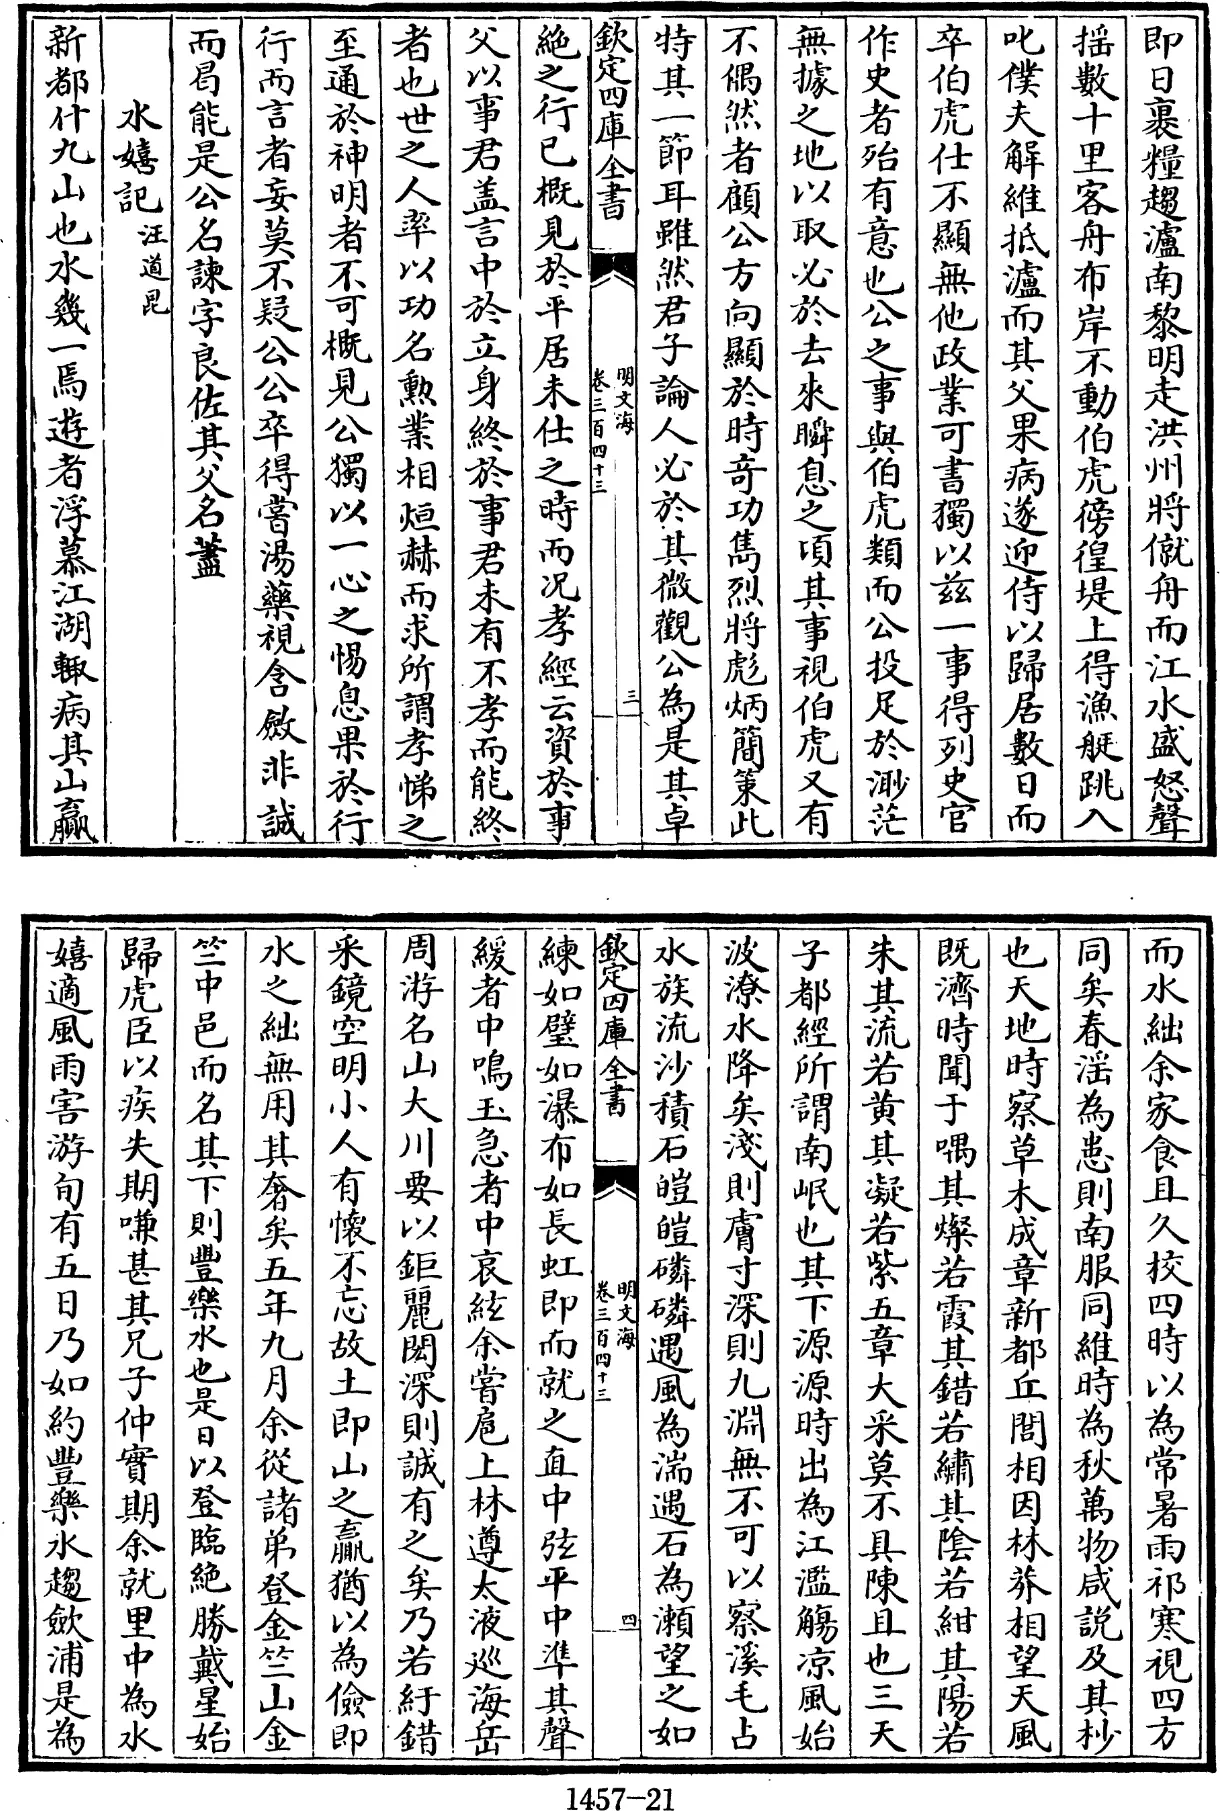 即日裹糧趨瀘南黎明走洪州將僦舟而江水盛怒聲
揺數十里客舟布岸不動伯虎傍徨堤上得漁艇跳入
叱僕夫解維抵瀘而其父果病遂迎侍以歸居數日而
卒伯虎仕不顯無他政業可書獨以兹一事得列史官
作史者殆有意也公之事與伯虎類而公投足於渺茫
無據之地以取必於去來瞬息之頃其事視伯虎又有
不偶然者顧公方向顯於時竒功雋烈將彪炳簡策此
特其一節耳雖然君子論人必於其微觀公為是其卓
欽定四庫全書
明文海
卷三百四十三
三
絶之行已概見於平居未仕之時而况孝經云資於事
父以事君盖言中於立身終於事君未有不孝而能終
者也世之人率以功名勲業相烜赫而求所謂孝悌之
至通於神明者不可概見公獨以一心之惕息果於行
行而言者妄莫不疑公公卒得嘗湯藥視含斂非誠
而曷能是公名諫字良佐其父名藎
水嬉記汪道昆
新都什九山也水幾一焉遊者浮慕江湖輙病其山贏
而水絀余家食且久校四時以為常暑雨祁寒視四方
同矣春滛為患則南服同維時為秋萬物咸説及其杪
也天地時察草木成章新都丘閭相因林莽相望天風
既濟時聞于喁其燦若霞其錯若繡其陰若紺其陽若
朱其流若黄其凝若紫五章大采莫不具陳且也三天
子都經所謂南岷也其下源源時出為江濫觴凉風始
波潦水降矣淺則膚寸深則九淵無不可以察溪毛占
水族流沙積石皚皚磷磷遇風為湍遇石為瀬望之如
欽定四庫全書
明文海
卷三百四十三
四
練如璧如瀑布如長虹即而就之直中弦平中準其聲
緩者中鳴玉急者中哀絃余嘗扈上林遵太液廵海岳
周游名山大川要以鉅麗閎深則誠有之矣乃若紆錯
采鏡空明小人有懷不忘故土即山之贏猶以為儉即
水之絀無用其奢矣五年九月余從諸弟登金竺山金
竺中邑而名其下則豐樂水也是日以登臨絶勝戴星始
歸虎臣以疾失期嗛甚其兄子仲實期余就里中為水
嬉適風雨害游旬有五日乃如約豐樂水趨歙浦是為
1457-21